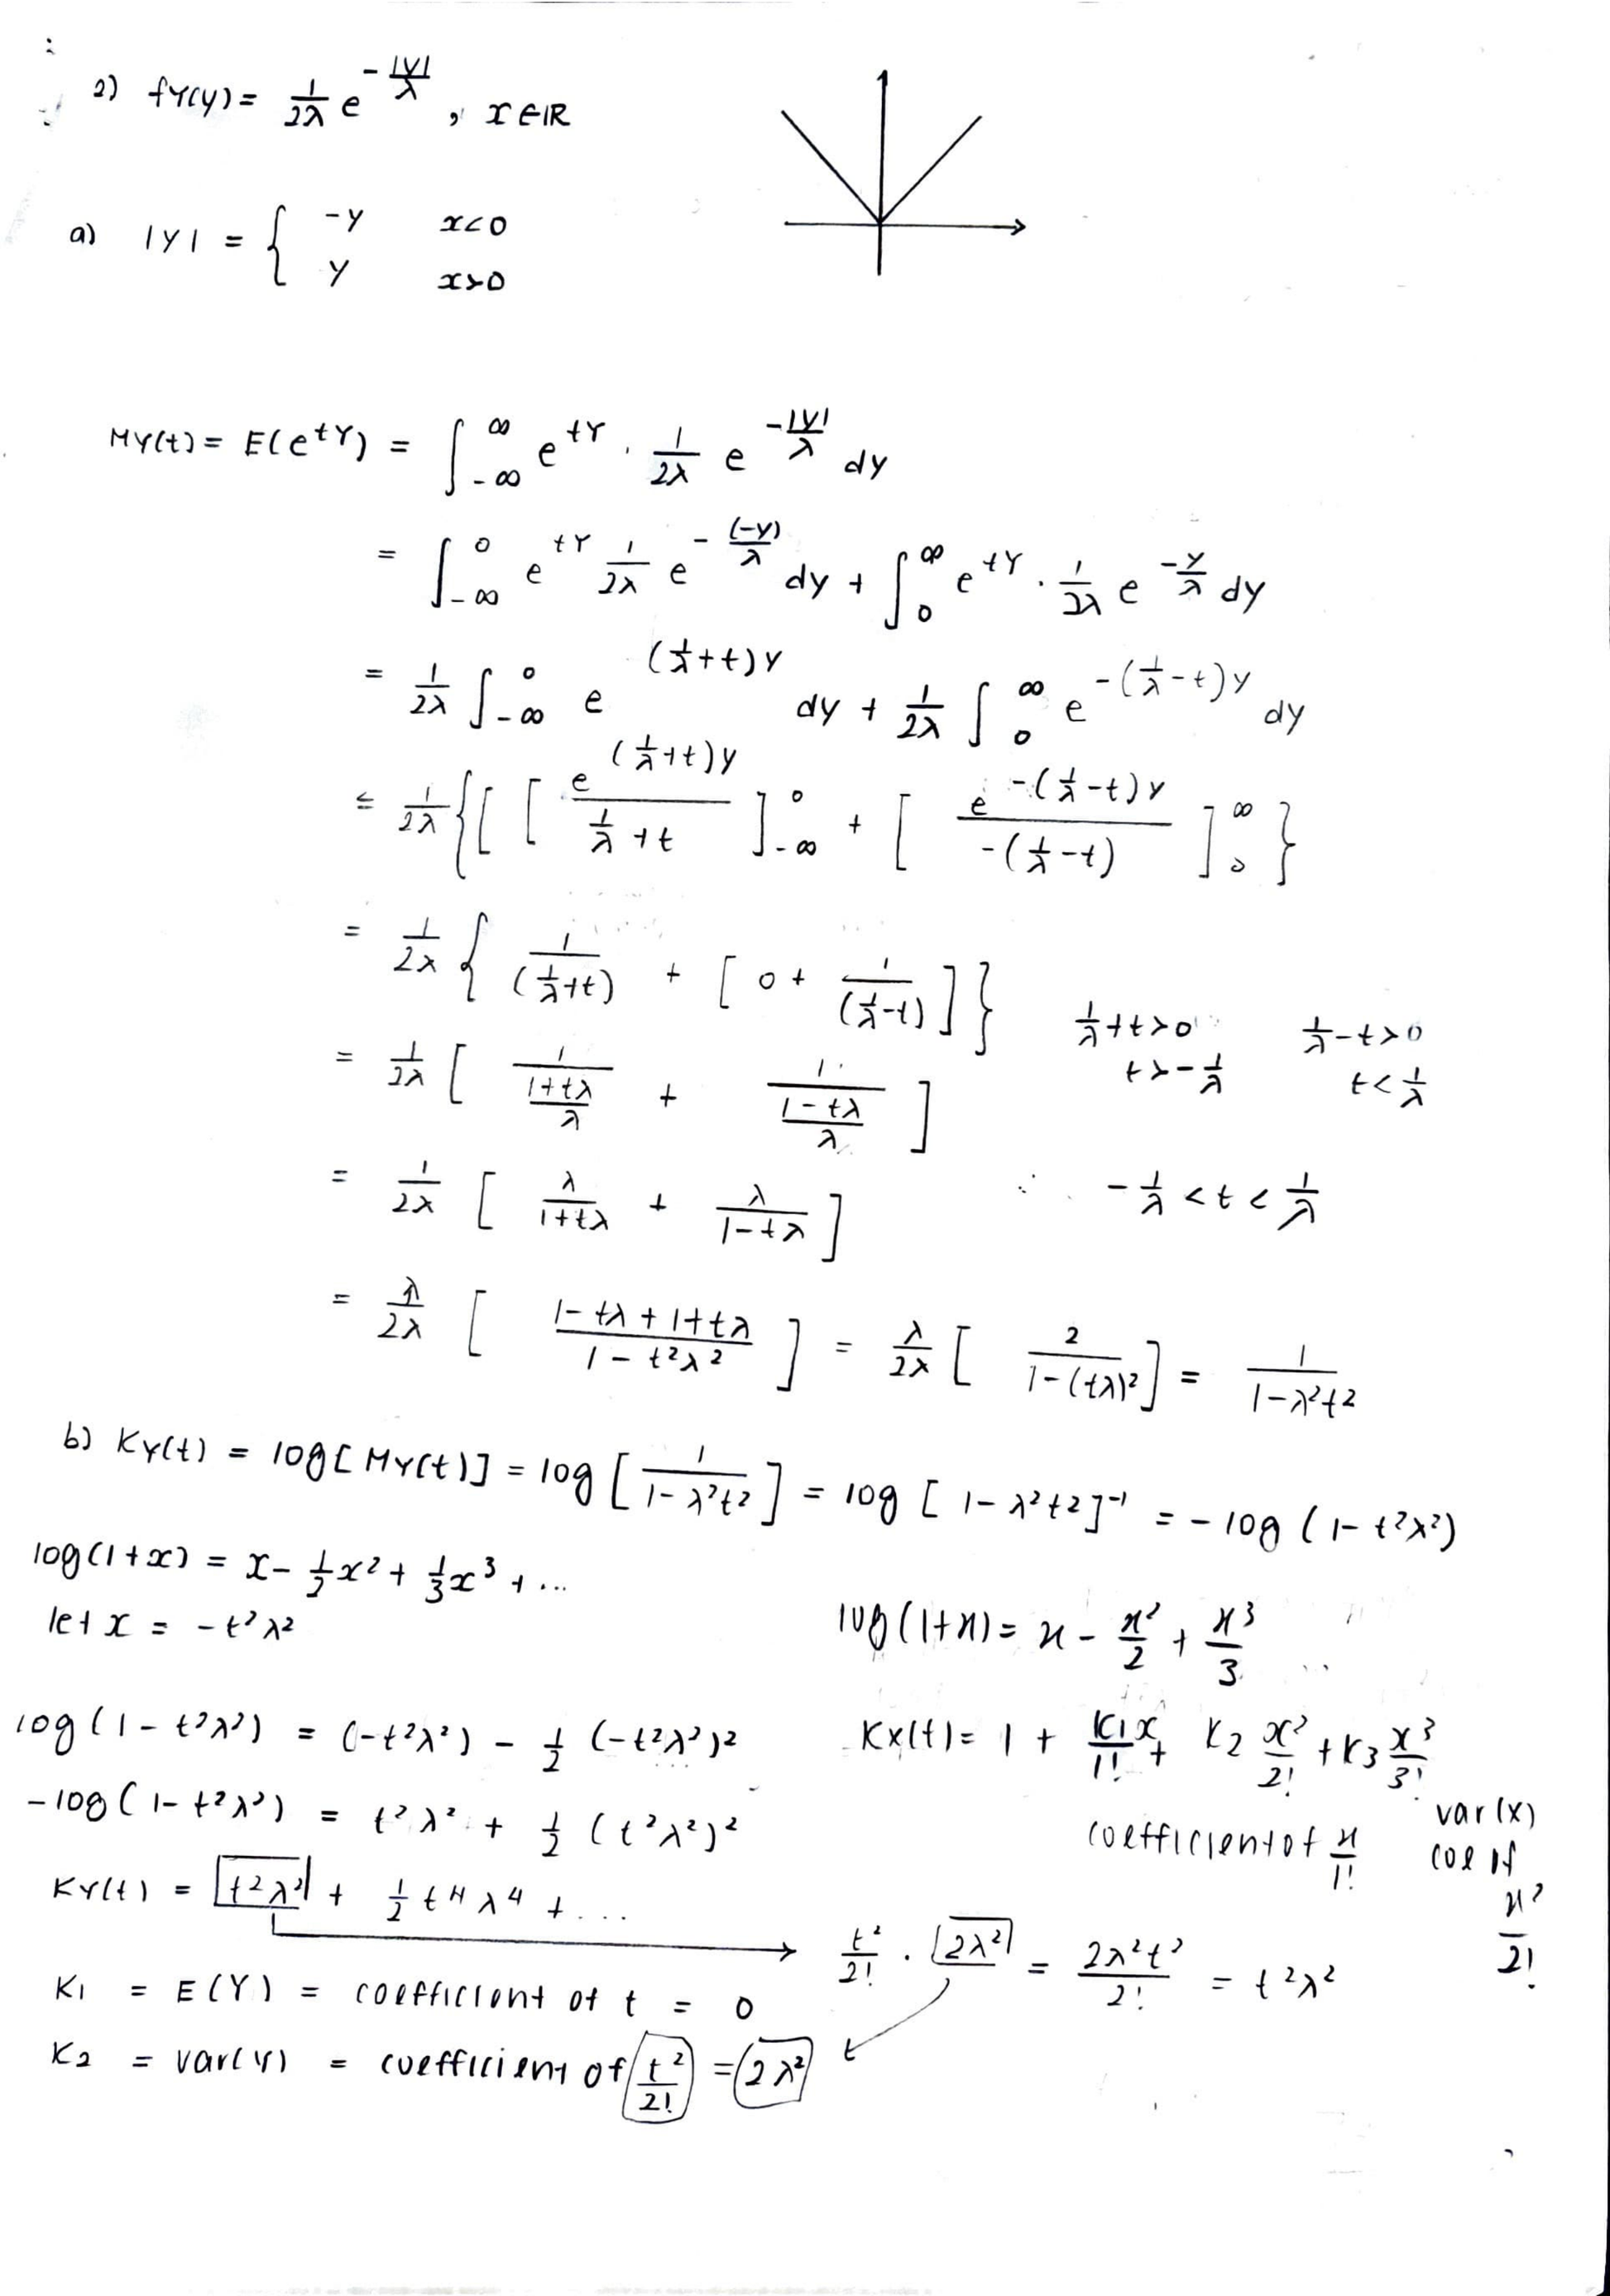 2) fY(y) = 1/2λ e^(-|y|/λ) , x ∈ IR
a) |y| = { -y x<0
y x>0
MY(t) = E(e^tY) = ∫_-∞^∞ e^tY . 1/2λ e^(-|y|/λ) dy
= ∫_-∞^0 e^tY 1/2λ e^(-(-y)/λ) dy + ∫_0^∞ e^tY . 1/2λ e^(-y/λ) dy
= 1/2λ ∫_-∞^0 e^((1/λ+t)y) dy + 1/2λ ∫_0^∞ e^(-(1/λ-t)y) dy
= 1/2λ {[ [ e^((1/λ+t)y) / (1/λ+t) ]_-∞^0 + [ e^(-(1/λ-t)y) / -(1/λ-t) ]_0^∞ }
= 1/2λ { 1/(1/λ+t) + [ 0 + 1/(1/λ-t) ] } 1/λ+t>0 1/λ-t>0
t>-1/λ t<1/λ
= 1/2λ [ 1/((1+tλ)/λ) + 1/((1-tλ)/λ) ]
= 1/2λ [ λ/(1+tλ) + λ/(1-tλ) ] ∴ -1/λ < t < 1/λ
= λ/2λ [ (1-tλ+1+tλ)/(1-t²λ²) ] = λ/2λ [ 2/(1-(tλ)²) ] = 1/(1-λ²t²)
b) KY(t) = log[MY(t)] = log [ 1/(1-λ²t²) ] = log [ 1-λ²t² ]^-1 = -log (1-t²λ²)
log(1+x) = x - 1/2 x² + 1/3 x³ + ...
let x = -t²λ²
log(1+x) = x - x²/2 + x³/3 ..
log(1-t²λ²) = (-t²λ²) - 1/2 (-t²λ²)²
Kx(t) = 1 + K1x/1! + K2 x²/2! + K3 x³/3!
-log(1-t²λ²) = t²λ² + 1/2 (t²λ²)²
coefficient of x/1!
var(x)
coeff
x²/2!
KY(t) = t²λ² + 1/2 t⁴λ⁴ + ...
t²/2! . 2λ² = 2λ²t²/2! = t²λ²
K1 = E(Y) = coefficient of t = 0
K2 = var(Y) = coefficient of t²/2! = 2λ² t